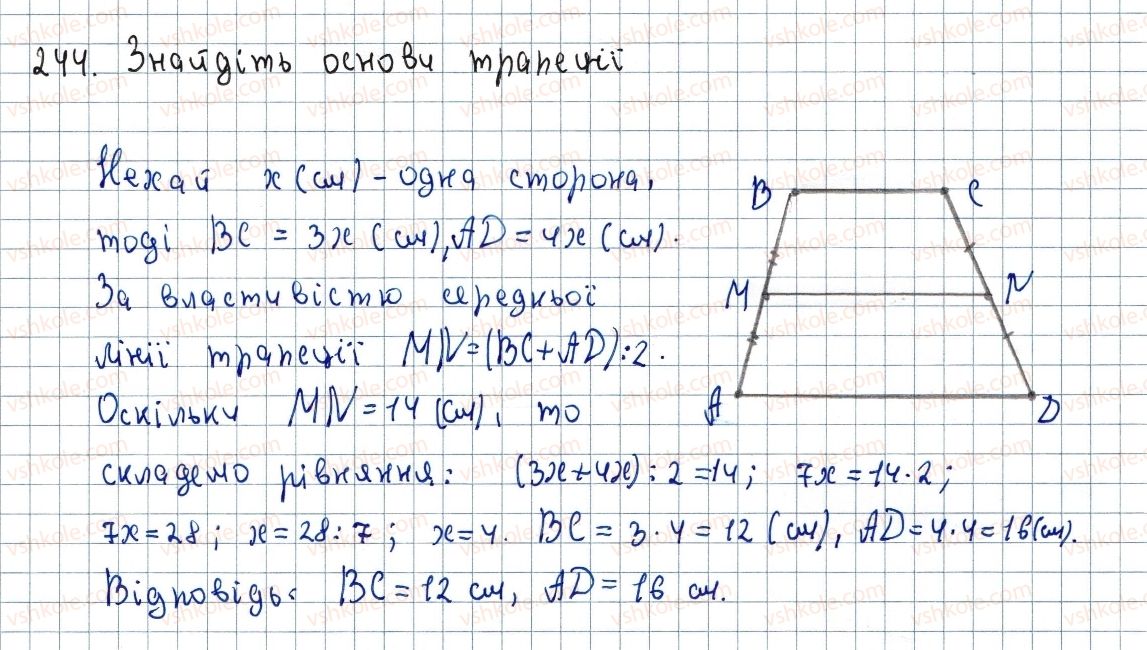 244. Знайдіть основи трапеції
Нехай x (см) - одна сторона,
тоді BC = 3x (см), AD = 4x (см).
За властивістю середньої
лінії трапеції MN = (BC + AD) : 2.
Оскільки MN = 14 (см), то
складемо рівняння: (3x + 4x) : 2 = 14; 7x = 14 · 2;
7x = 28; x = 28 : 7; x = 4. BC = 3 · 4 = 12 (см), AD = 4 · 4 = 16 (см).
Відповідь: BC = 12 см, AD = 16 см.
B C
M N
A D
vshkole.com